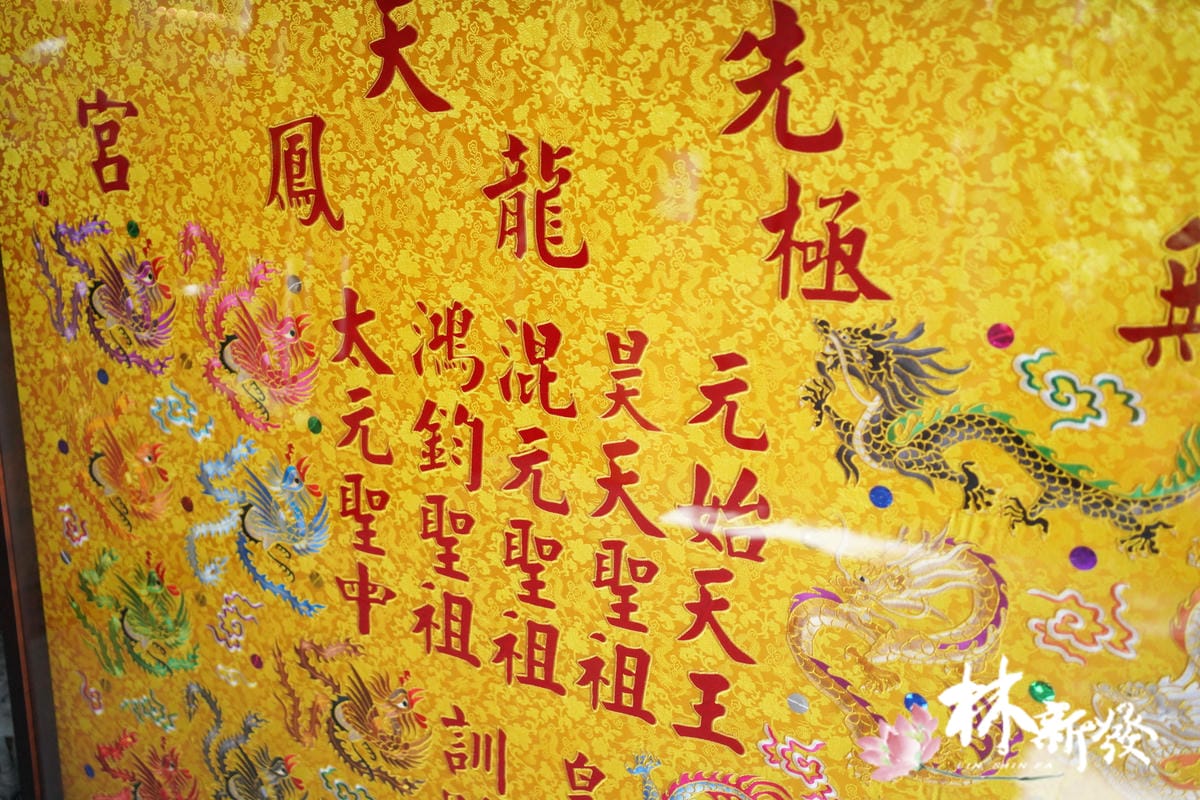 先極
元始天王
昊天聖祖
混元聖祖
鴻鈞聖祖
太元聖中
天
龍
鳳
宮
訓
林新發
LIN SHIN FA